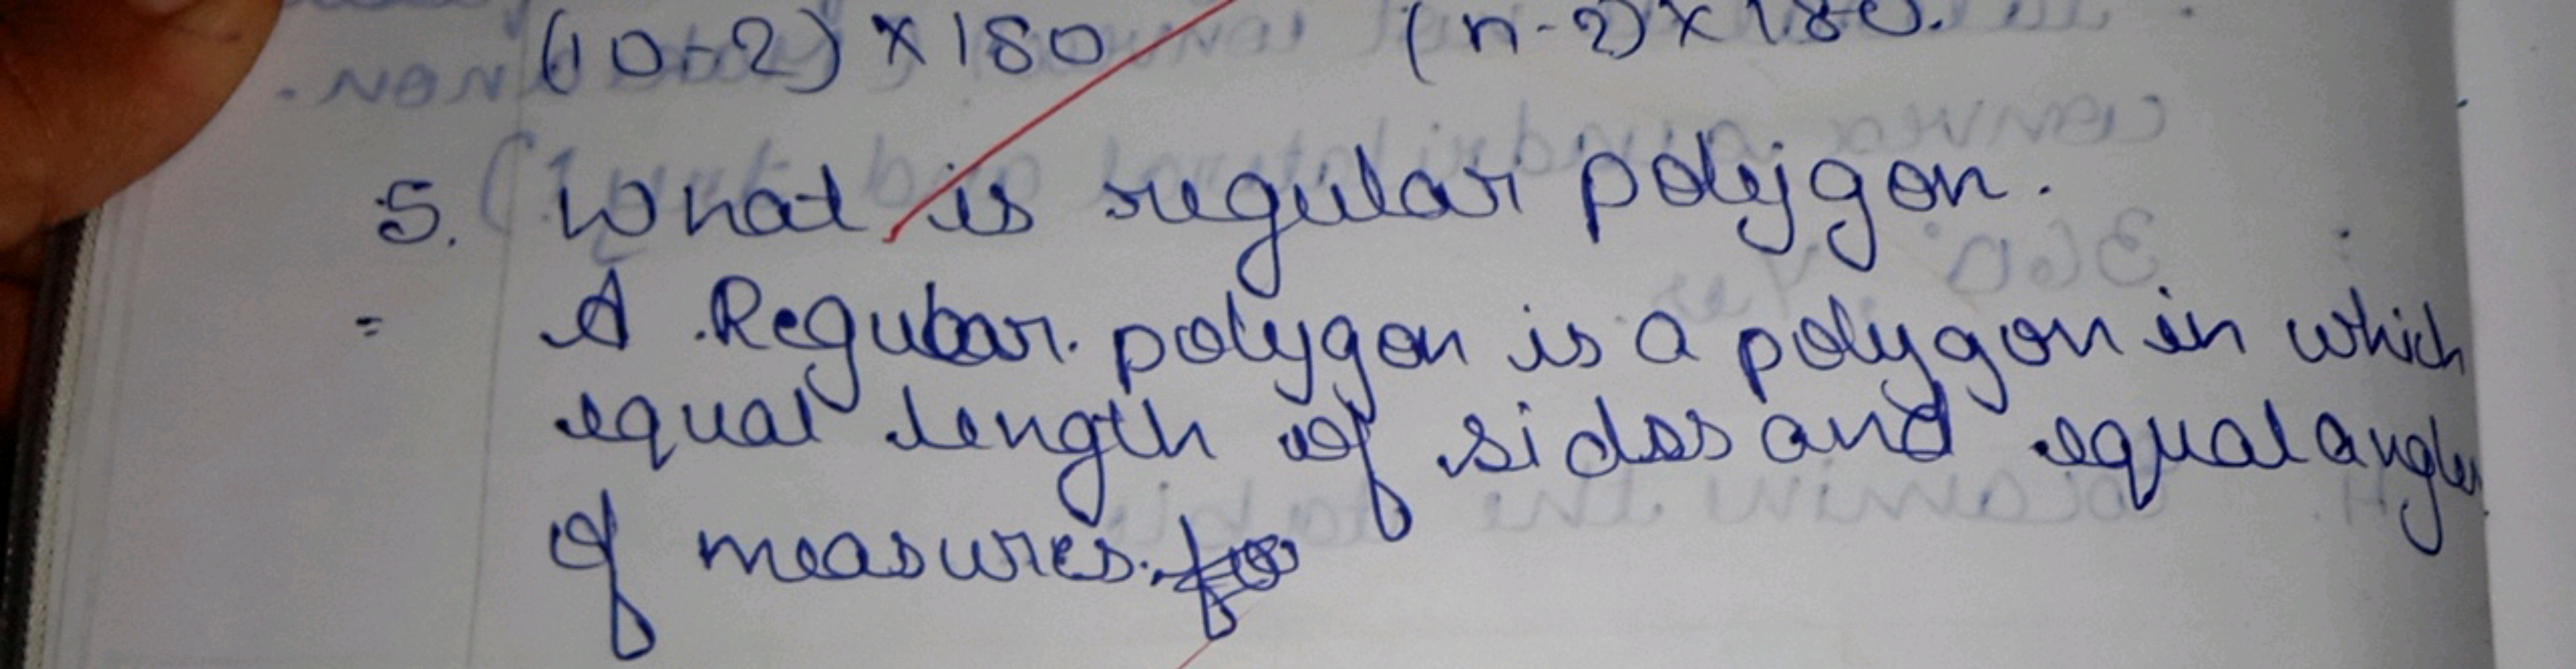 (10-2) × 180 (n-2) × 180.
5. What is regular polygon.
= A Regular polygon is a polygon in which
equal length of sides and equal angles
of measures.